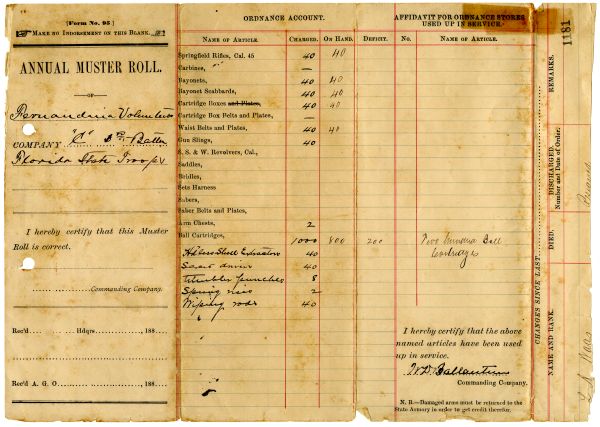 [Form No. 95]
MAKE NO INDORSEMENT ON THIS BLANK.
ANNUAL MUSTER ROLL.
—OF—
Fernandina Volunteers
COMPANY "C" 3rd Battn
Florida State Troops
I hereby certify that this Muster
Roll is correct.
Commanding Company.
Rec'd Hdqrs. 188
Rec'd A. G. O. 188
ORDNANCE ACCOUNT.
NAME OF ARTICLE. CHARGED. ON HAND. DEFICIT.
Springfield Rifles, Cal. 45 40 40
Carbines, —
Bayonets, 40 40
Bayonet Scabbards, 40 40
Cartridge Boxes and Plates, 40 40
Cartridge Box Belts and Plates, —
Waist Belts and Plates, 40 40
Gun Slings, 40
S. S. & W. Revolvers, Cal.,
Saddles,
Bridles,
Sets Harness
Sabers,
Saber Belts and Plates,
Arm Chests, 2
Ball Cartridges, 1000 800 200
Headless Shell Extractors 40
Screw driver 40
Tumbler punches 8
Spring vises 2
Wiping rods 40
AFFIDAVIT FOR ORDNANCE STORES
USED UP IN SERVICE.
No. NAME OF ARTICLE.
Two Hundred Ball
Cartridges
I hereby certify that the above
named articles have been used
up in service.
W. D. Ballantine
Commanding Company.
N. B.—Damaged arms must be returned to the
State Armory in order to get credit therefor.
1181
CHANGES SINCE LAST
NAME AND RANK. DIED. DISCHARGED. Number and Date of Order. REMARKS.